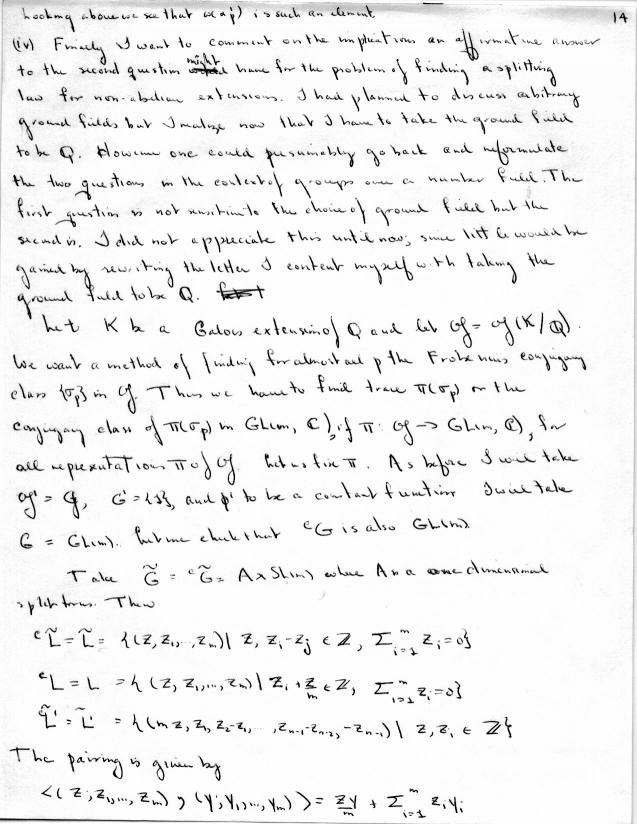 14
Looking above we see that ω(αp) is such an element
(iv) Finally I want to comment on the implications an affirmative answer
to the second question might have for the problem of finding a splitting
law for non-abelian extensions. I had planned to discuss arbitrary
ground fields but I realize now that I have to take the ground field
to be Q. However one could presumably go back and reformulate
the two questions in the context of groups over a number field. The
first question is not sensitive to the choice of ground field but the
second is. I did not appreciate this until now; since little would be
gained by rewriting the letter I content myself with taking the
ground field to be Q.
Let K be a Galois extension of Q and let 𝔤 = 𝔤(K/Q).
We want a method of finding for almost all p the Frobenius conjugacy
class {σp} in 𝔤. Thus we have to find trace π(σp) or the
conjugacy class of π(σp) in GL(m, C), if π: 𝔤 → GL(m, C), for
all representations π of 𝔤. Let us fix π. As before I will take
𝔤' = 𝔤, G' = {1}, and ρ' to be a constant function. I will take
G = GL(m). Let me check that ᶜG is also GL(m).
Take G̃ = ᶜG̃ = A × SL(m) where A is a one dimensional
split torus. Then
ᶜL̃ = L̃ = {(z, z₁, .., zₘ) | z, zᵢ - zⱼ ∈ Z, Σᵢ₌₁ᵐ zᵢ = 0}
ᶜL = L = {(z, z₁, ..., zₘ) | zᵢ + z/m ∈ Z, Σᵢ₌₁ᵐ zᵢ = 0}
ᶜL̃' = L̃' = {(mz, z₁, z₂-z₁, ..., zₘ₋₁-zₘ₋₂, -zₘ₋₁) | z, zᵢ ∈ Z}
The pairing is given by
<(z; z₁, ..., zₘ), (y; y₁, ..., yₘ)> = zy/m + Σᵢ₌₁ᵐ zᵢyᵢ